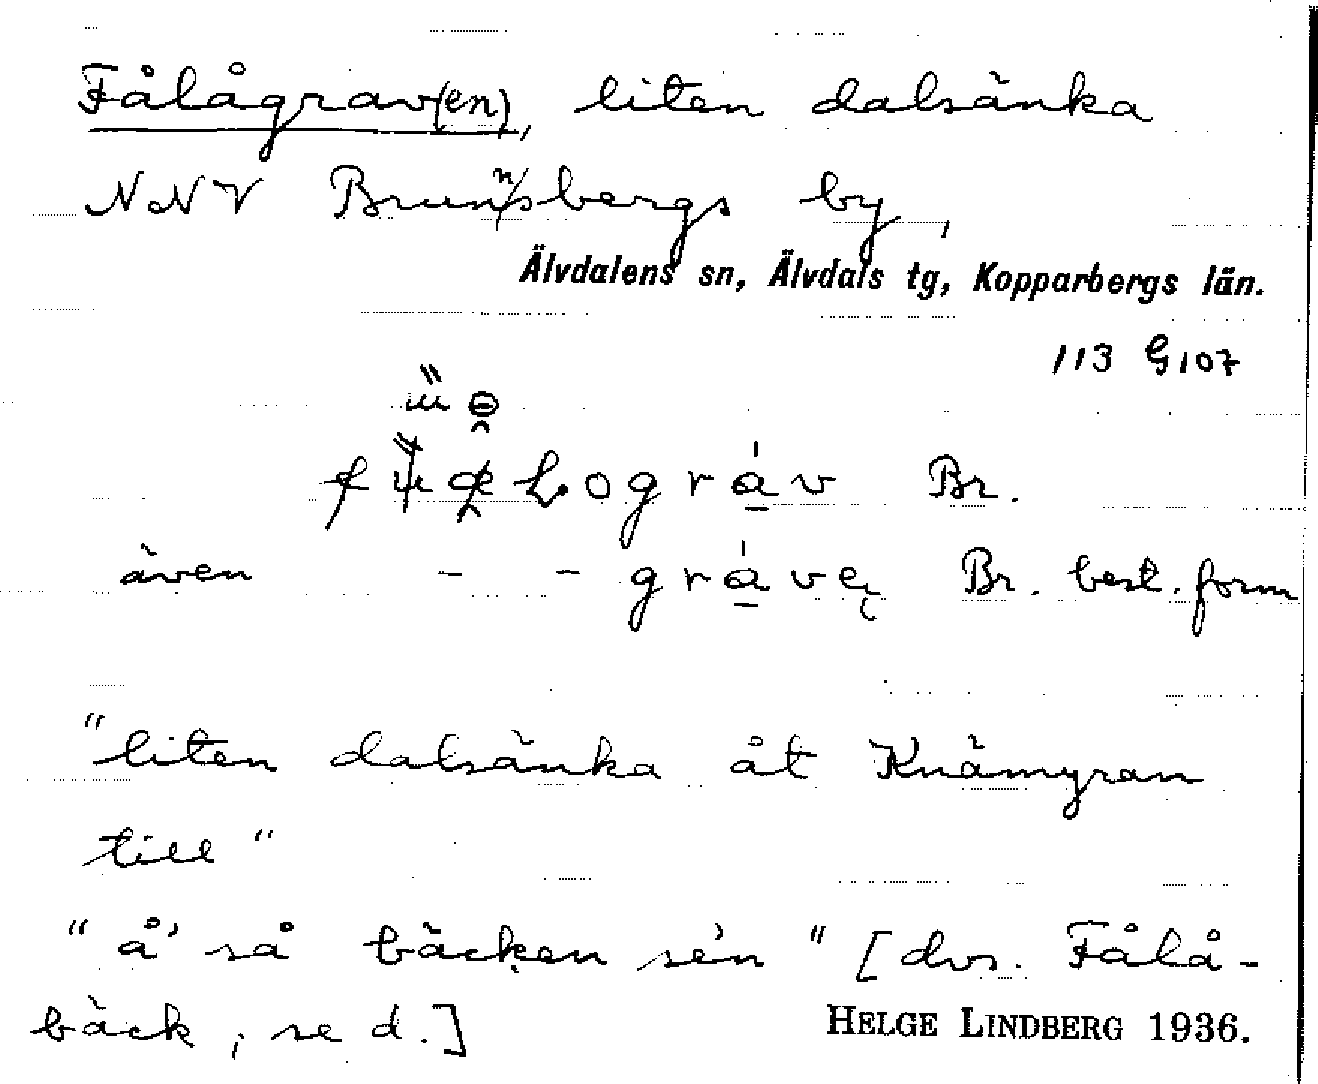 Fålågrav(en), liten dalsänka
NNV Brunnsbergs by,
Älvdalens sn, Älvdals tg, Kopparbergs län.
113 G107
Br.
även - - Br. best. form
"liten dalsänka åt Knämyran
till"
"å' så bäcken se'n" [dvs. Fålå-
bäck, se d.]
HELGE LINDBERG 1936.